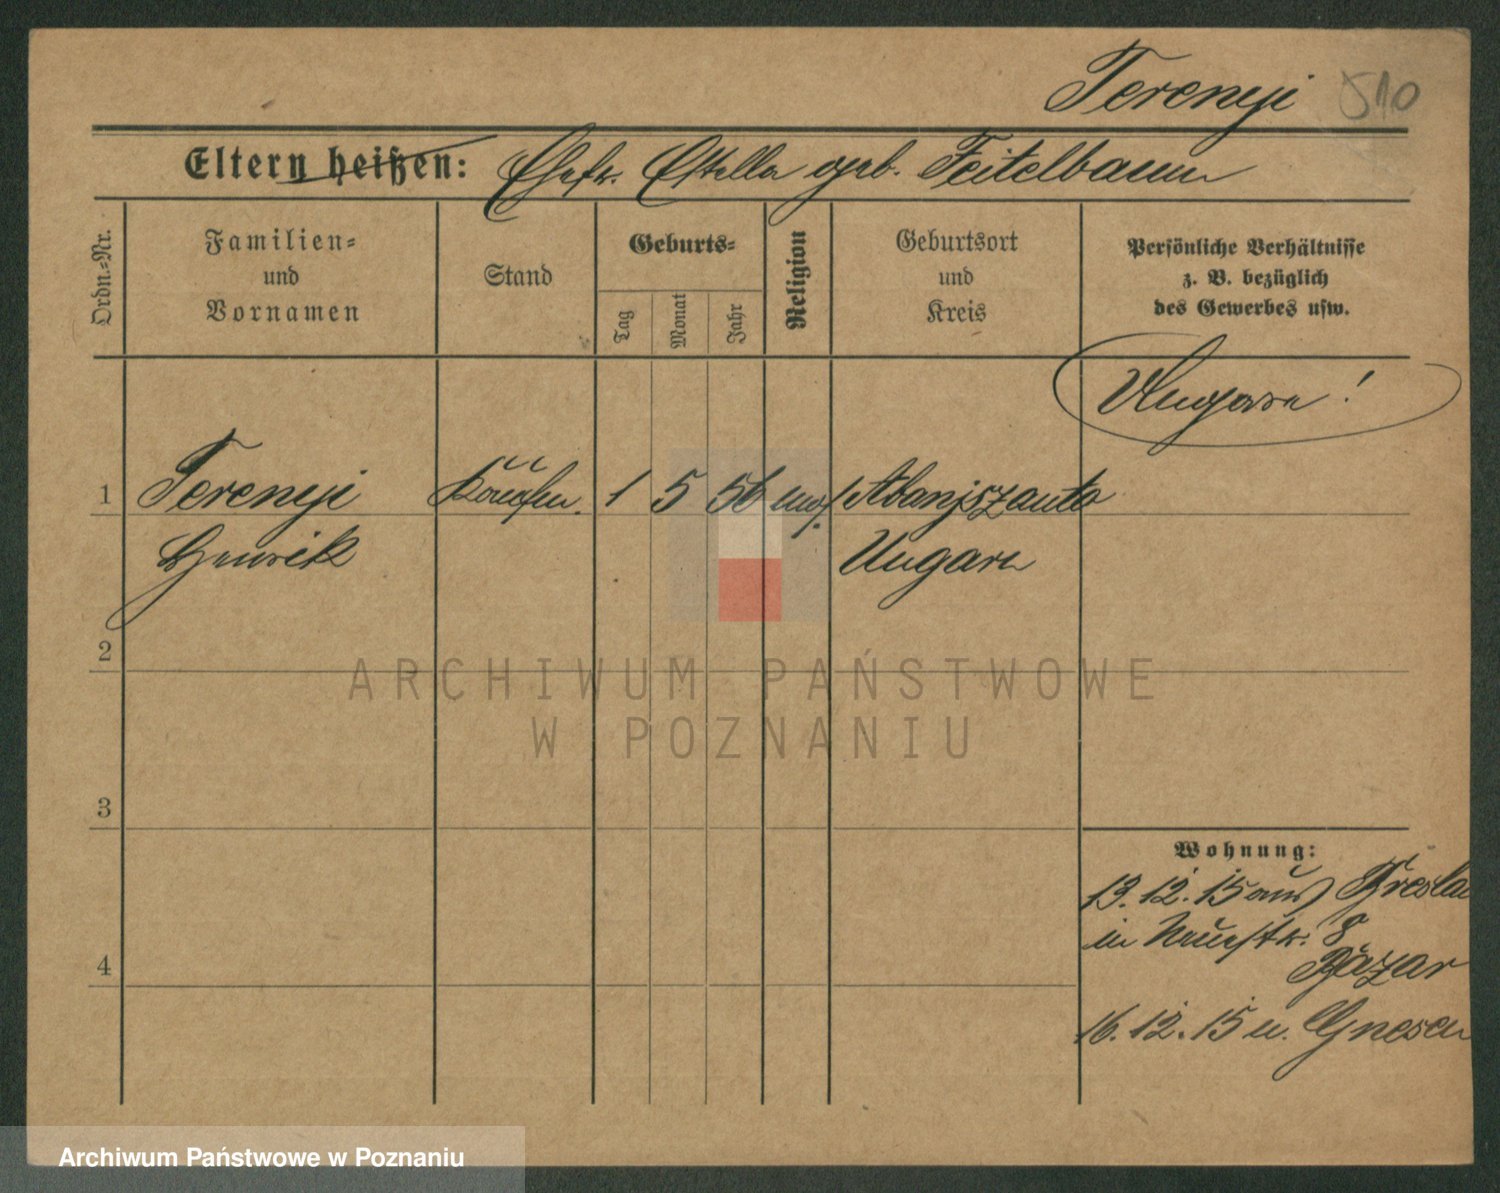 Terenyi 510
Eltern heißen: Ehefr. Estella geb. Feitelbaum
Ordn.=Nr.
Familien=
und
Vornamen
Stand
Geburts=
Tag
Monat
Jahr
Religion
Geburtsort
und
Kreis
Persönliche Verhältnisse
z. B. bezüglich
des Gewerbes usw.
Ungarn!
1 Terenyi 1 5 56 Abanjszanto
Henrik Ungarn
2
3
4
Wohnung:
13.12.15 aus Breslau
in Neuestr. 8
Bazar
16.12.15 n. Gnesen
ARCHIWUM PAŃSTWOWE
W POZNANIU
Archiwum Państwowe w Poznaniu